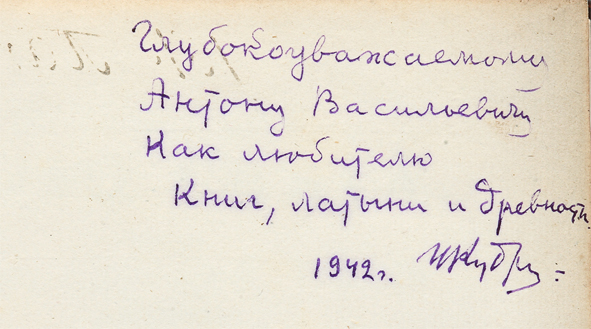 Глубокоуважаемому
Антону Васильевичу
Как любителю
Книг, латыни и древности
1942 г.